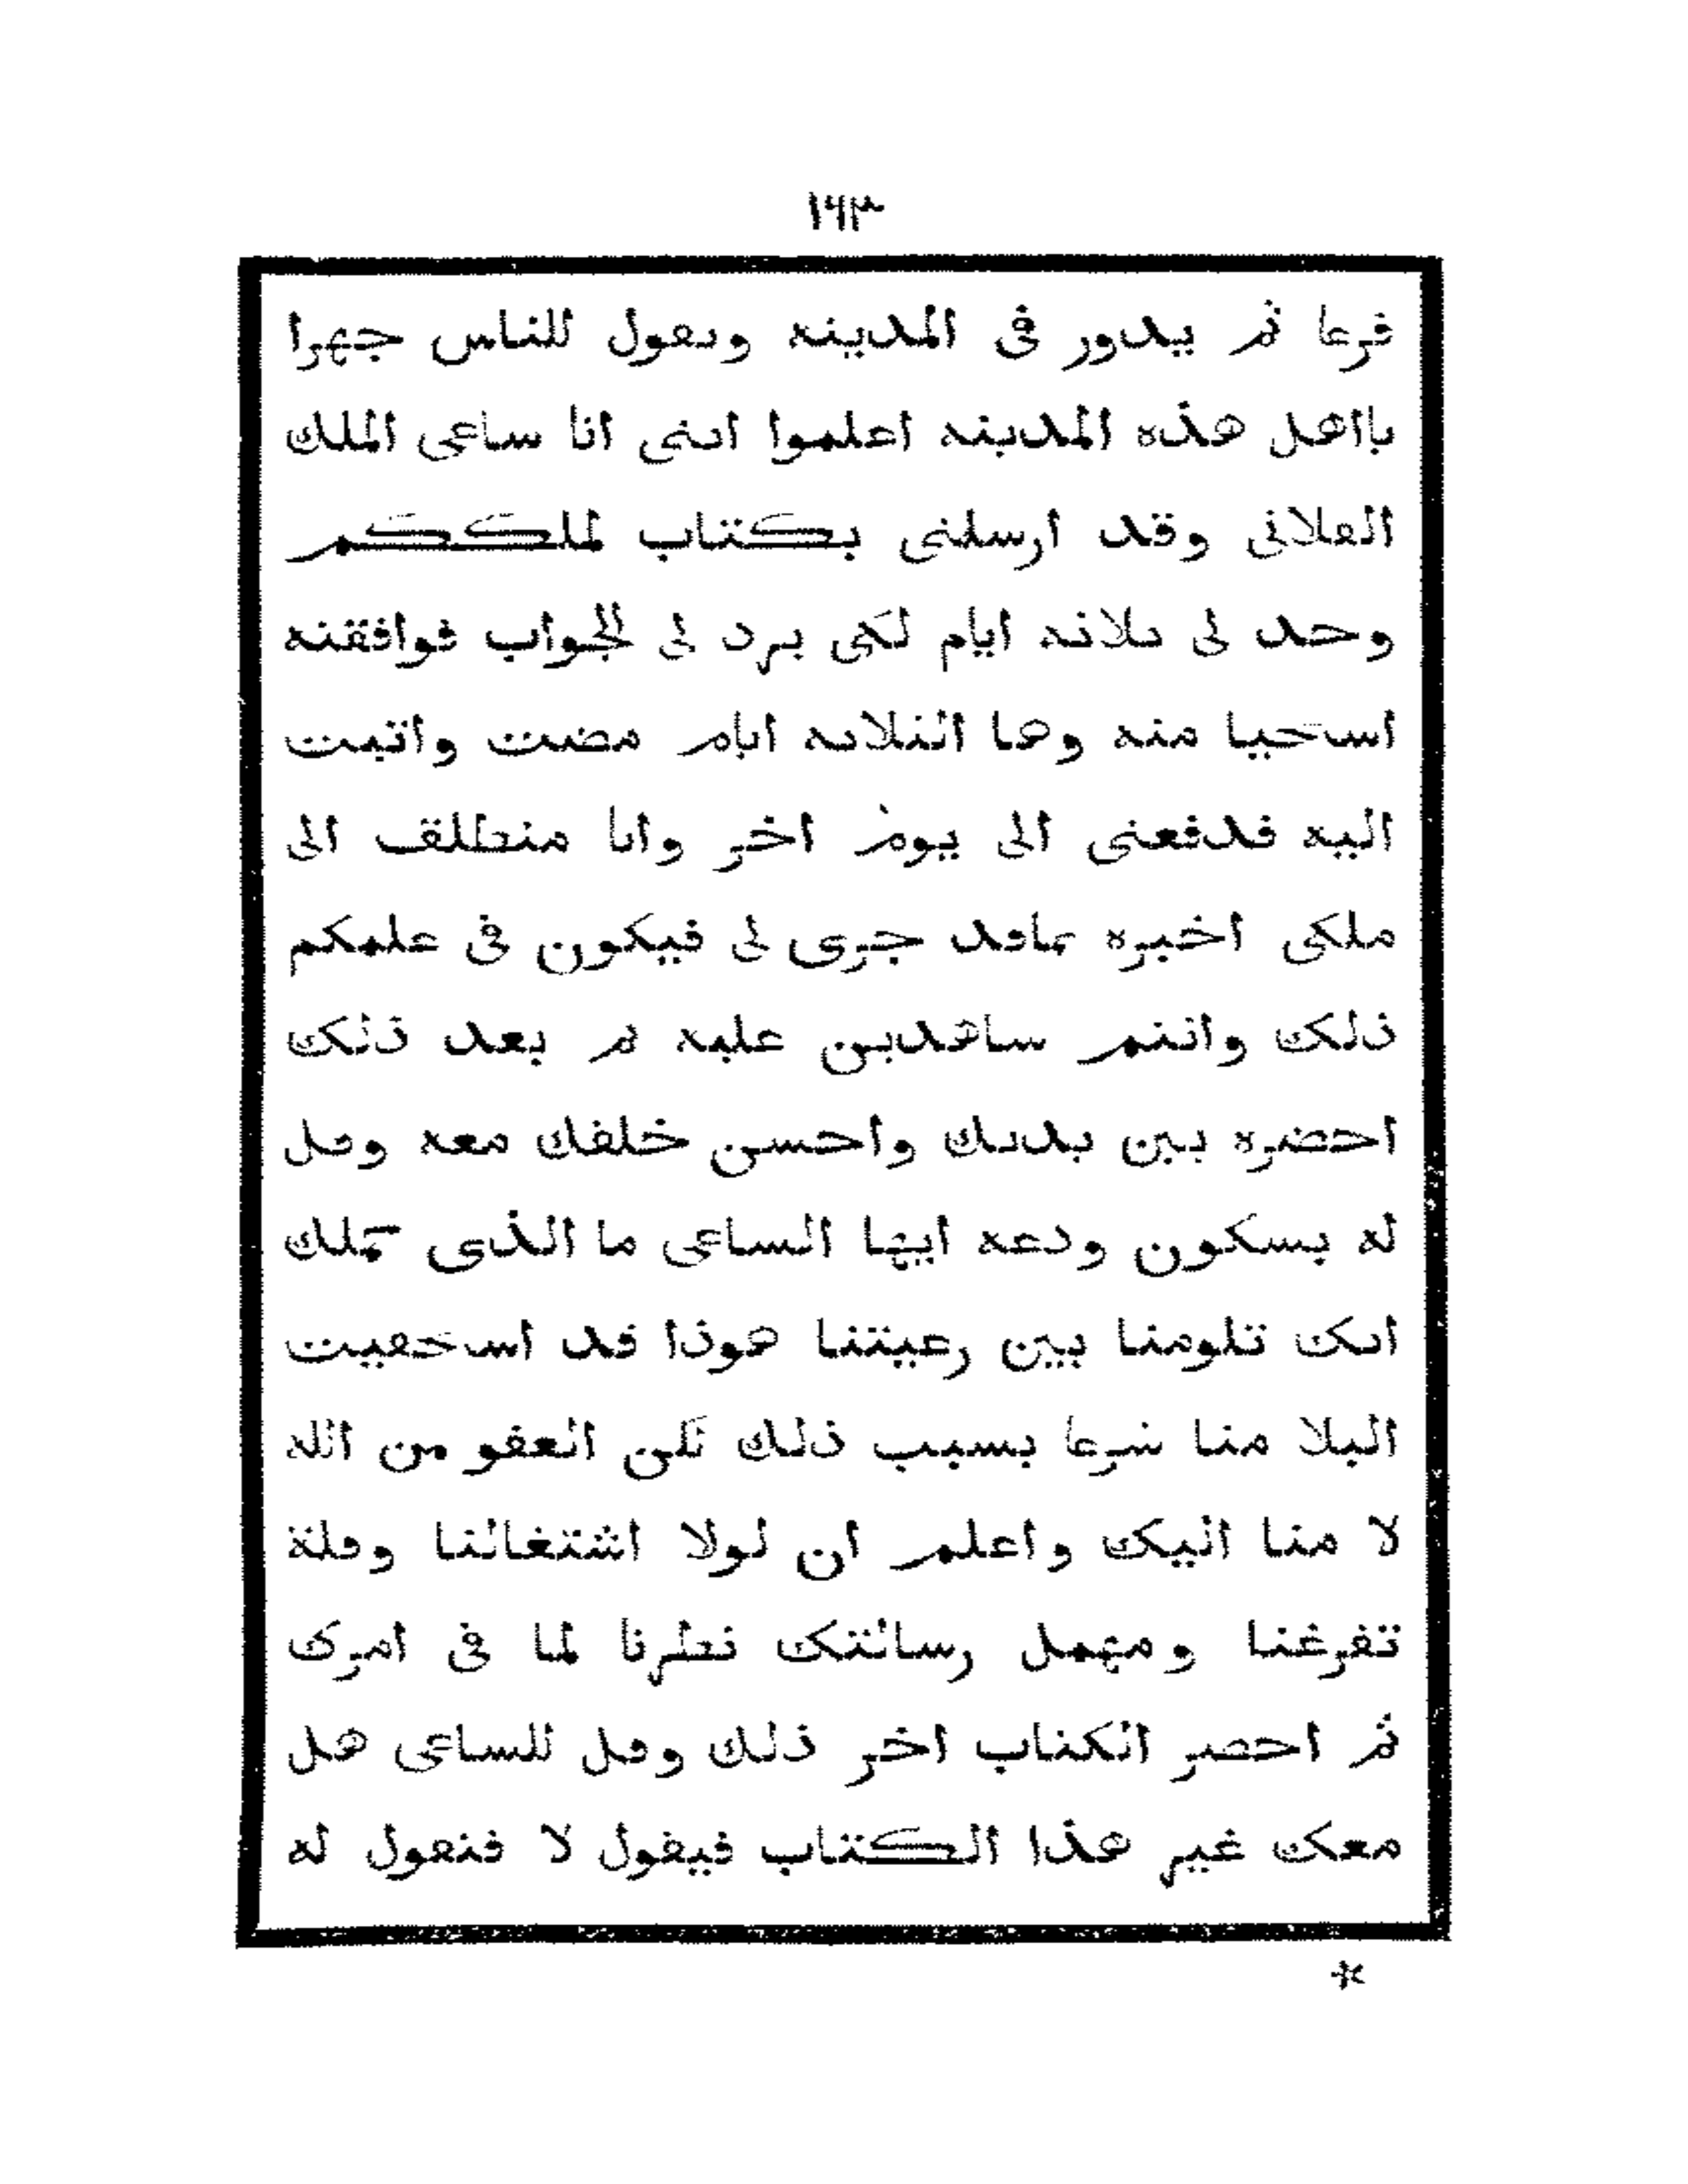 ١٦٣
فرعا ثم يدور فى المدينه ويقول للناس جهرا
يااهل هذه المدينه اعلموا اننى انا ساعى الملك
الفلانى وقد ارسلنى بكتاب لملككم
وحد لى ثلاثه ايام لكى يرد لى الجواب فوافقته
استحيا منه وها الثلاثه ايام مضت واتيت
اليه فدفعنى الى يوم اخر وانا منطلق الى
ملكى اخبره بماقد جرى لى فيكون فى علمكم
ذلك وانتم ساهدين عليه ثم بعد ذلك
احضره بين يديك واحسن خلقك معه وقل
له بسكون ودعه ايها الساعى ما الذى حملك
انك تلومنا بين رعيتنا هوذا قد استحقيت
البلا منا شرعا بسبب ذلك لكن العفو من الله
لا منا اليك واعلم ان لولا اشتغالنا وقلة
تفرغنا ومهمل رسالتك نظرنا لما فى امرك
ثم احضر الكتاب اخر ذلك وقل للساعى هل
معك غير هذا الكتاب فيقول لا فتقول له
*